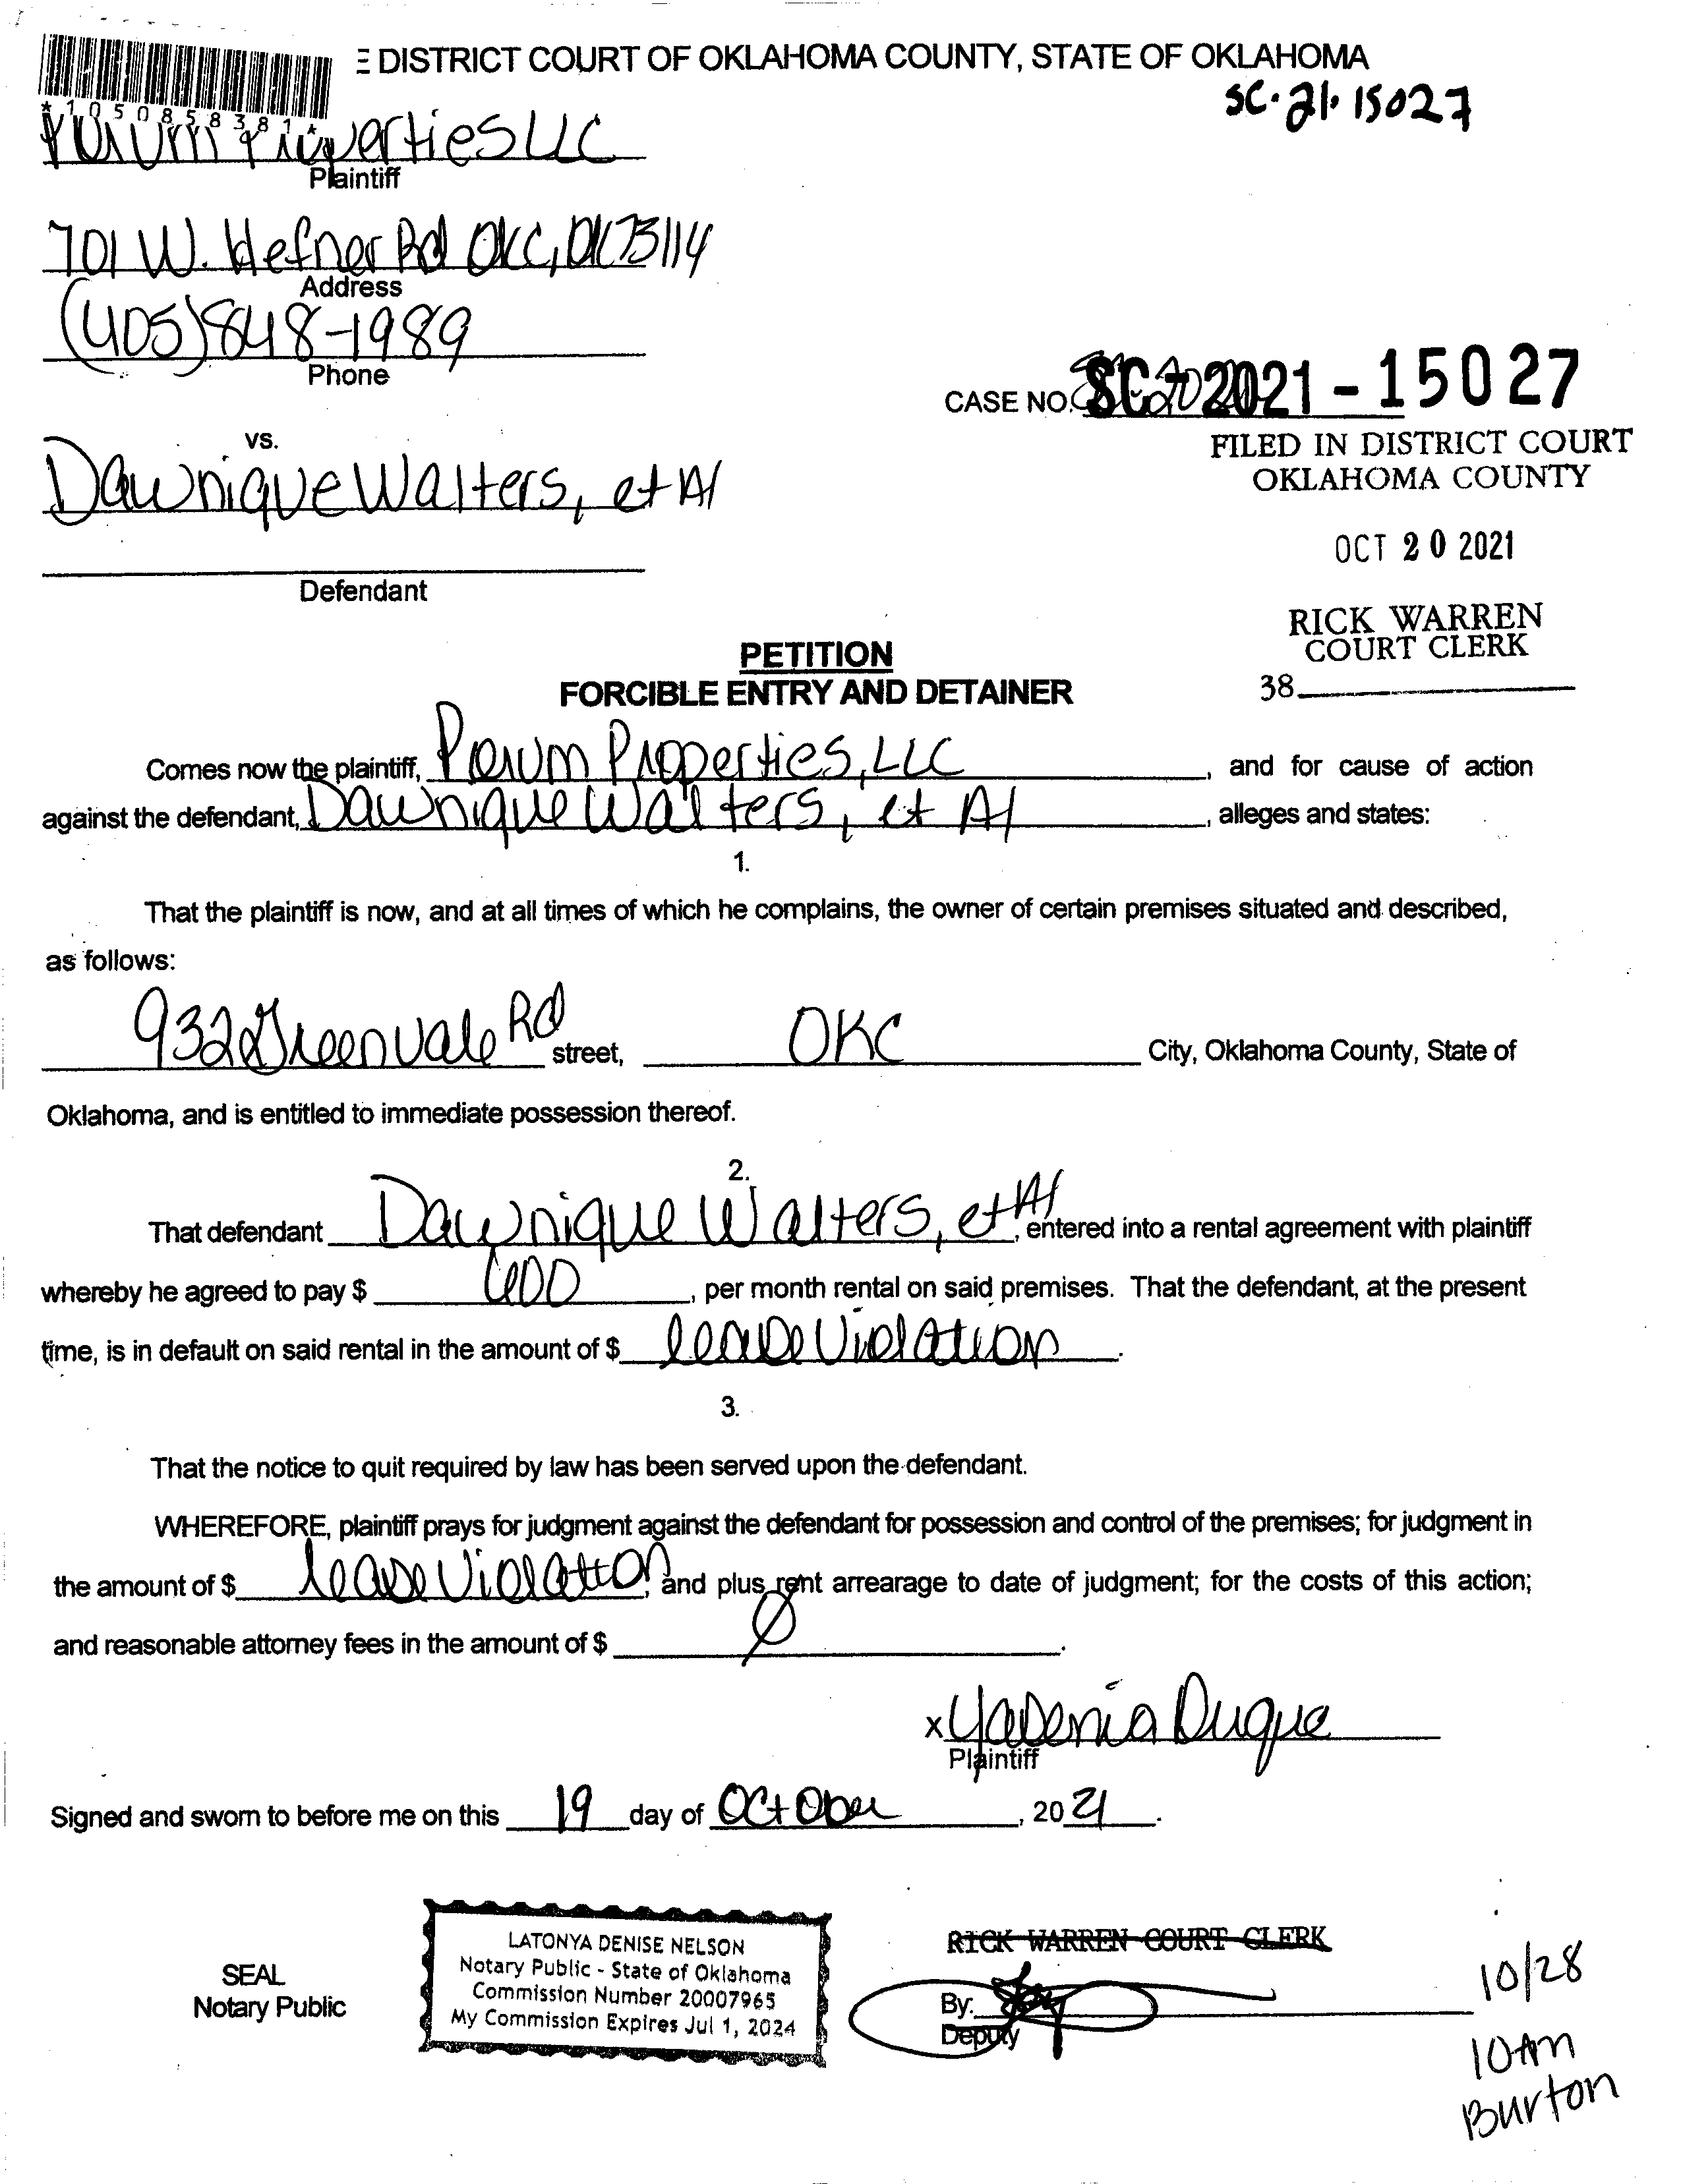 DISTRICT COURT OF OKLAHOMA COUNTY, STATE OF OKLAHOMA
SC-21-15027
*1050858381*
Properties LLC
Plaintiff
701 W. Hefner Rd OKC, OK 73114
Address
(405) 848-1989
Phone
CASE NO. SC-2021-15027
FILED IN DISTRICT COURT
OKLAHOMA COUNTY
vs.
Dawnique Walters, et Al
OCT 20 2021
Defendant
RICK WARREN
COURT CLERK
38
PETITION
FORCIBLE ENTRY AND DETAINER
Comes now the plaintiff, Properties, LLC, and for cause of action
against the defendant, Dawnique Walters, et Al, alleges and states:
1.
That the plaintiff is now, and at all times of which he complains, the owner of certain premises situated and described,
as follows:
932 Greenvale Rd street, OKC City, Oklahoma County, State of
Oklahoma, and is entitled to immediate possession thereof.
2.
That defendant Dawnique Walters, et Al, entered into a rental agreement with plaintiff
whereby he agreed to pay $ 600, per month rental on said premises. That the defendant, at the present
time, is in default on said rental in the amount of $ lease violation.
3.
That the notice to quit required by law has been served upon the defendant.
WHEREFORE, plaintiff prays for judgment against the defendant for possession and control of the premises; for judgment in
the amount of $ lease violation, and plus rent arrearage to date of judgment; for the costs of this action;
and reasonable attorney fees in the amount of $ Ø.
x Yadenia Duque
Plaintiff
Signed and sworn to before me on this 19 day of October, 2021.
SEAL
Notary Public
LATONYA DENISE NELSON
Notary Public - State of Oklahoma
Commission Number 20007965
My Commission Expires Jul 1, 2024
RICK WARREN COURT CLERK
By:
Deputy
10/28
10 Am
Burton